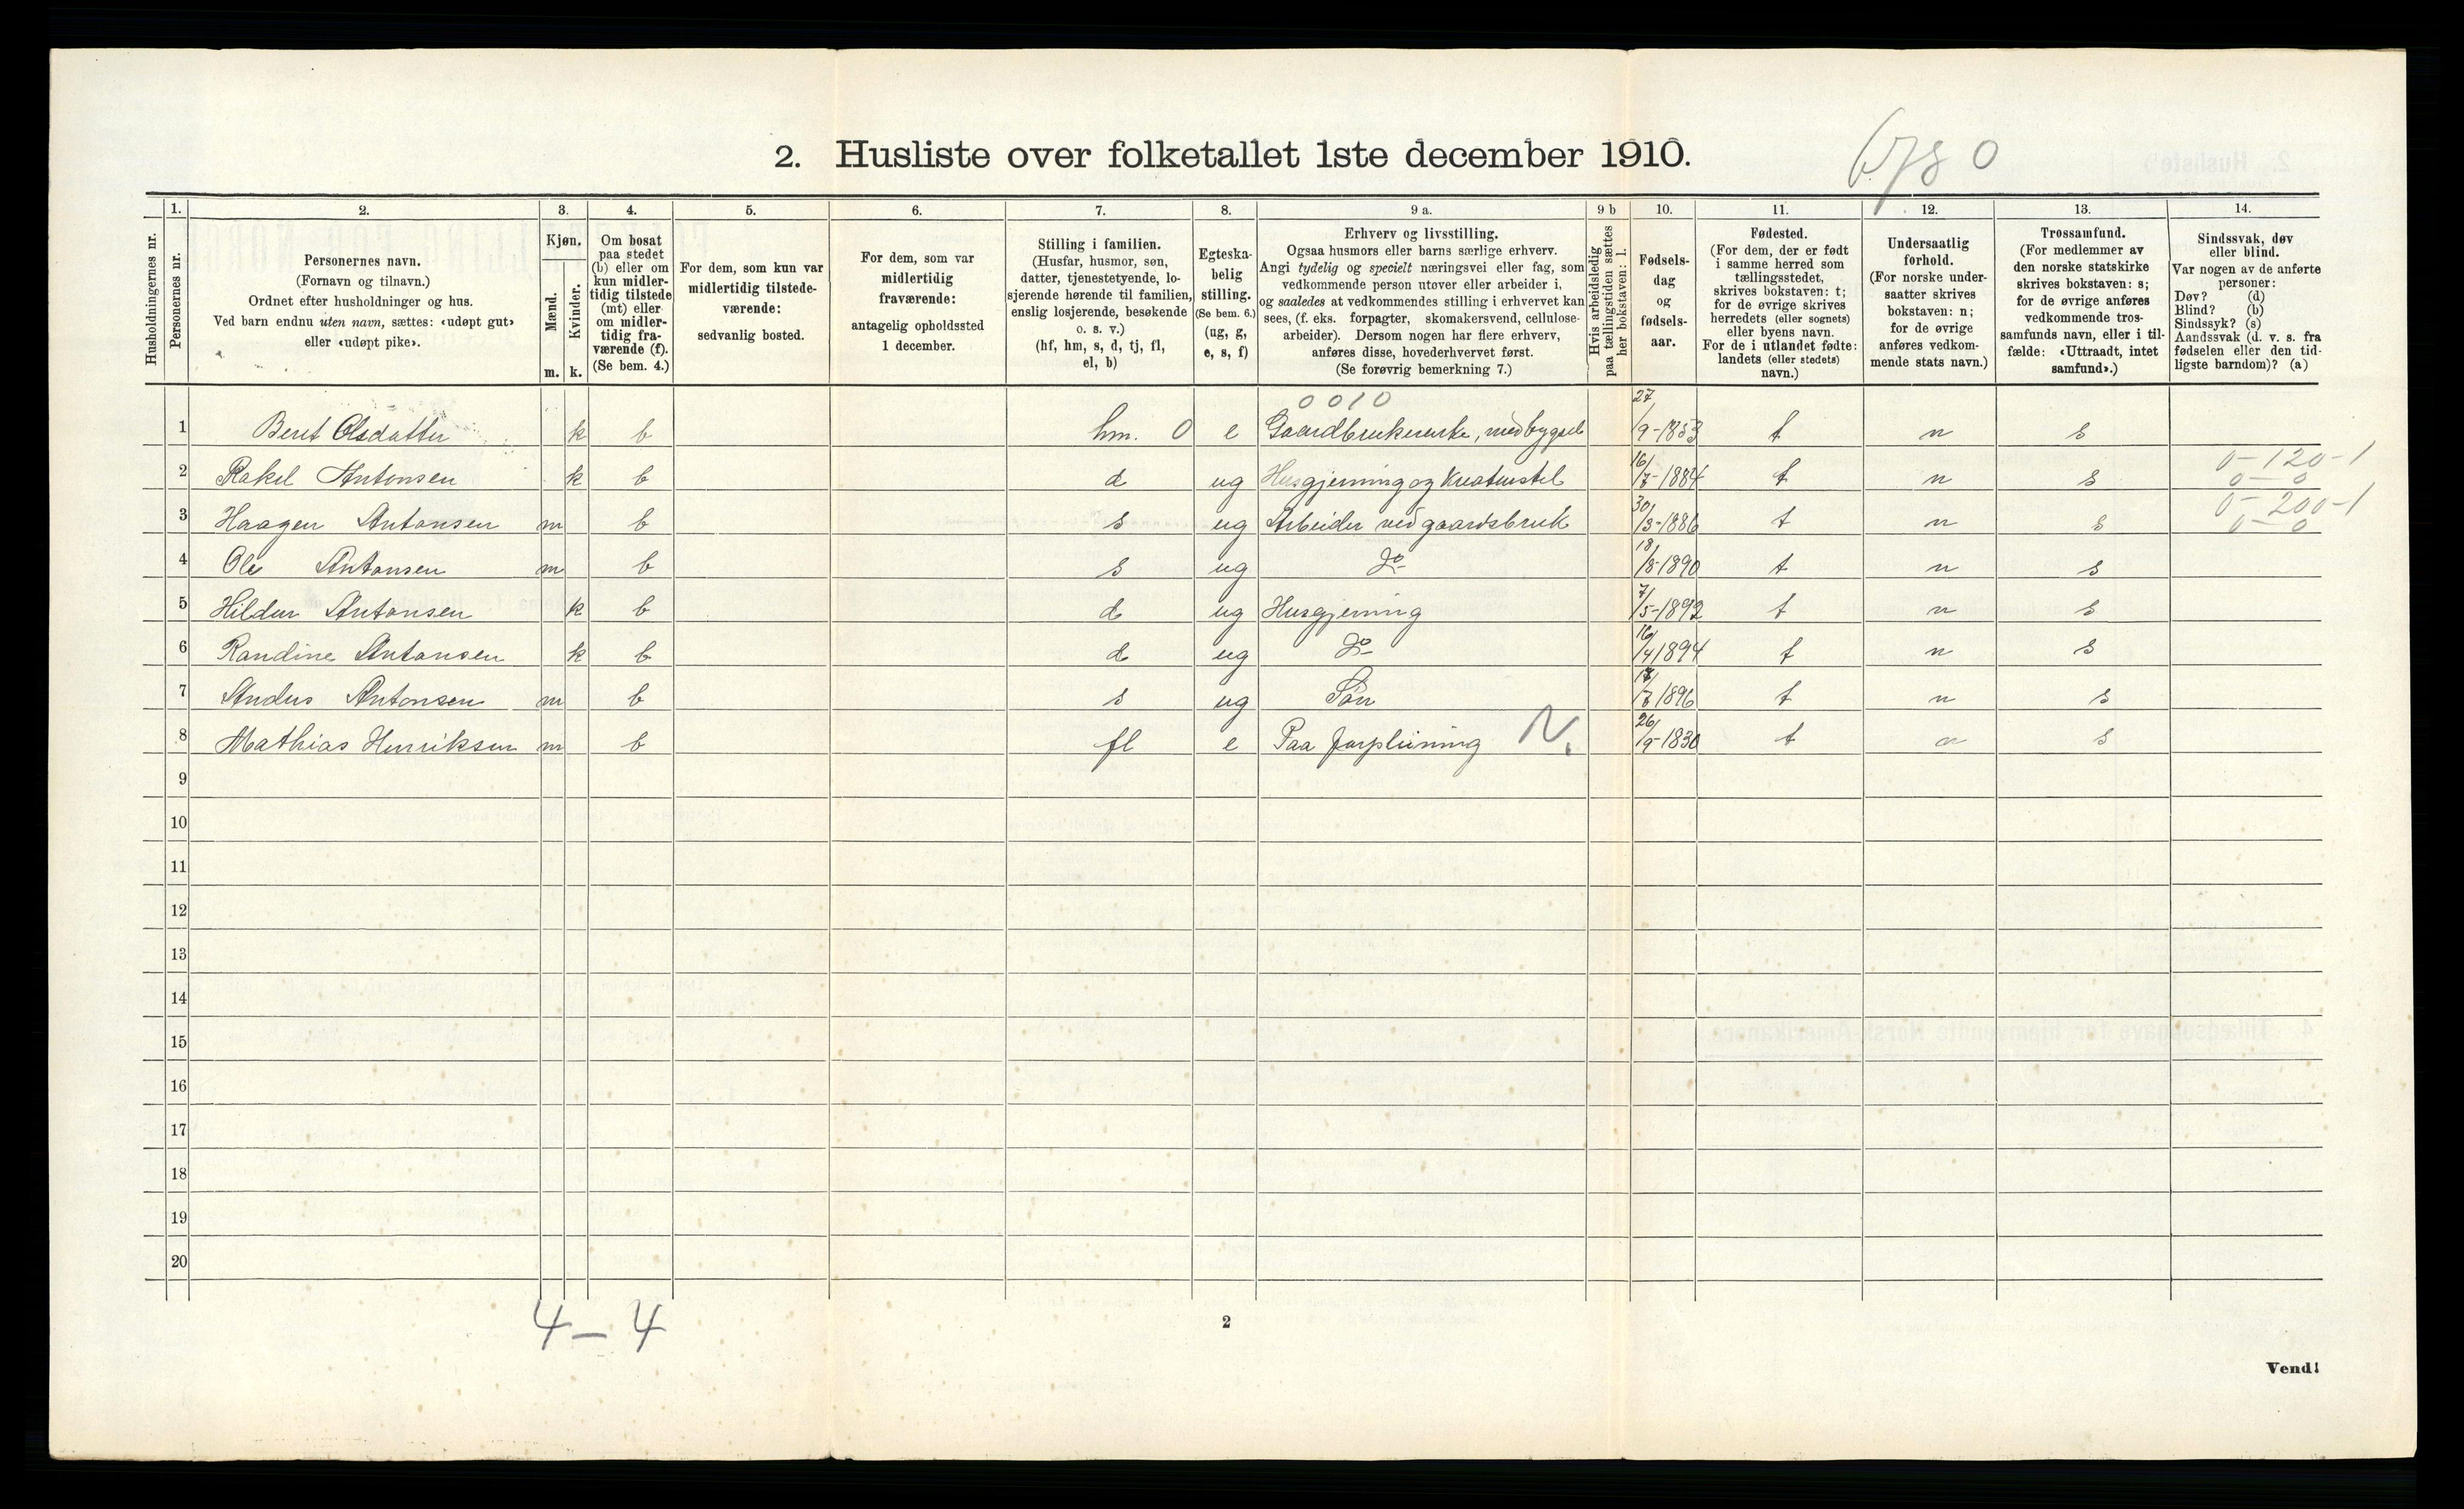 2. Husliste over folketallet 1ste december 1910.
Husholdningernes nr.
1. Personernes nr.
2. Personernes navn.
(Fornavn og tilnavn.)
Ordnet efter husholdninger og hus.
Ved barn endnu uten navn, sættes: «udøpt gut»
eller «udøpt pike».
3. Kjøn.
Mænd. m.
Kvinder. k.
4. Om bosat
paa stedet
(b) eller om
kun midler-
tidig tilstede
(mt) eller
om midler-
tidig fra-
værende (f).
(Se bem. 4.)
5. For dem, som kun var
midlertidig tilstede-
værende:
sedvanlig bosted.
6. For dem, som var
midlertidig
fraværende:
antagelig opholdssted
1 december.
7. Stilling i familien.
(Husfar, husmor, søn,
datter, tjenestetyende, lo-
sjerende hørende til familien,
enslig losjerende, besøkende
o. s. v.)
(hf, hm, s, d, tj, fl,
el, b)
8. Egteska-
belig
stilling.
(Se bem. 6.)
(ug, g,
e, s, f)
9 a. Erhverv og livsstilling.
Ogsaa husmors eller barns særlige erhverv.
Angi tydelig og specielt næringsvei eller fag, som
vedkommende person utøver eller arbeider i,
og saaledes at vedkommendes stilling i erhvervet kan
sees, (f. eks. forpagter, skomakersvend, cellulose-
arbeider). Dersom nogen har flere erhverv,
anføres disse, hovederhvervet først.
(Se forøvrig bemerkning 7.)
9 b Hvis arbeidsledig
paa tællingstiden sættes
her bokstaven: l.
10. Fødsels-
dag
og
fødsels-
aar.
11. Fødested.
(For dem, der er født
i samme herred som
tællingsstedet,
skrives bokstaven: t;
for de øvrige skrives
herredets (eller sognets)
eller byens navn.
For de i utlandet fødte:
landets (eller stedets)
navn.)
12. Undersaatlig
forhold.
(For norske under-
saatter skrives
bokstaven: n;
for de øvrige
anføres vedkom-
mende stats navn.)
13. Trossamfund.
(For medlemmer av
den norske statskirke
skrives bokstaven: s;
for de øvrige anføres
vedkommende tros-
samfunds navn, eller i til-
fælde: «Uttraadt, intet
samfund».)
14. Sindssvak, døv
eller blind.
Var nogen av de anførte
personer:
Døv? (d)
Blind? (b)
Sindssyk? (s)
Aandssvak (d. v. s. fra
fødselen eller den tid-
ligste barndom)? (a)
0010
1 Beret Olsdatter k b hm. 0 e Gaardbrukerenke, med bygsel 27/9-1853 t n s
0-120-1
2 Rakel Antonsen k b d ug Husgjerning og Kreaturstel 16/7-1884 t n s 0-0
0-200-1
3 Haagen Antonsen m b s ug Arbeider ved gaardsbruk 30/3-1886 t n s 0-0
4 Ole Antonsen m b s ug Do 18/8-1890 t n s
5 Hildur Antonsen k b d ug Husgjerning 7/5-1892 t n s
6 Randine Antonsen k b d ug Do 16/4 1894 t n s
7 Anders Antonsen m b s ug Søn 1896 t n s
8 Mathias Henriksen m b fl e Paa forpleining N. 26/9-1830 t n s
9
10
11
12
13
14
15
16
17
18
19
20
4-4
2
Vend!